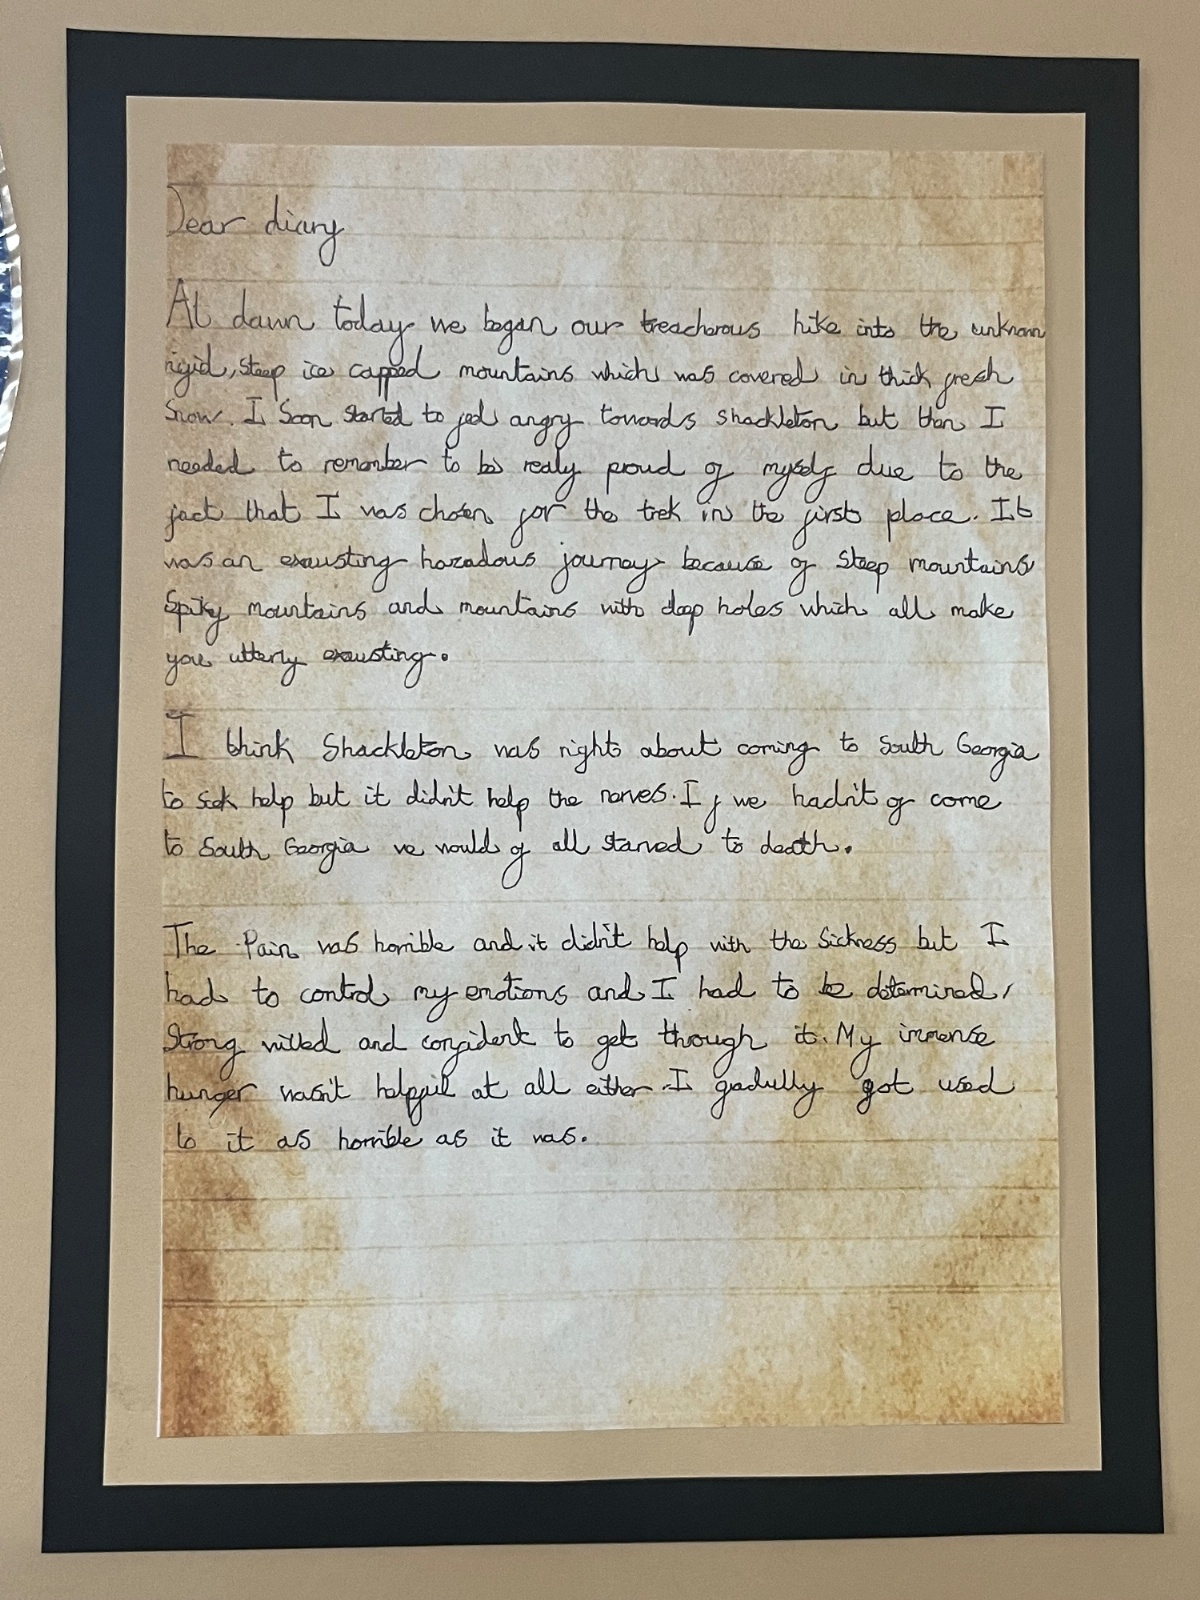 Dear diary
At dawn today we began our treacherous hike into the unknown
rigid, steep ice capped mountains which was covered in thick fresh
snow. I soon started to feel angry towards Shackleton but then I
needed to remember to be realy proud of myself due to the
fact that I was chosen for the trek in the first place. It
was an exausting hazadous journey because of steep mountains
spiky mountains and mountains with deep holes which all make
you utterly exausting.
I think Shackleton was right about coming to South Georgia
to seek help but it didn't help the nerves. If we hadn't of come
to South Georgia we would of all starved to death.
The Pain was horrible and it didn't help with the sickness but I
had to control my emotions and I had to be determined,
Strong willed and confident to get through it. My immense
hunger wasn't helpful at all either. I gradully got used
to it as horrible as it was.